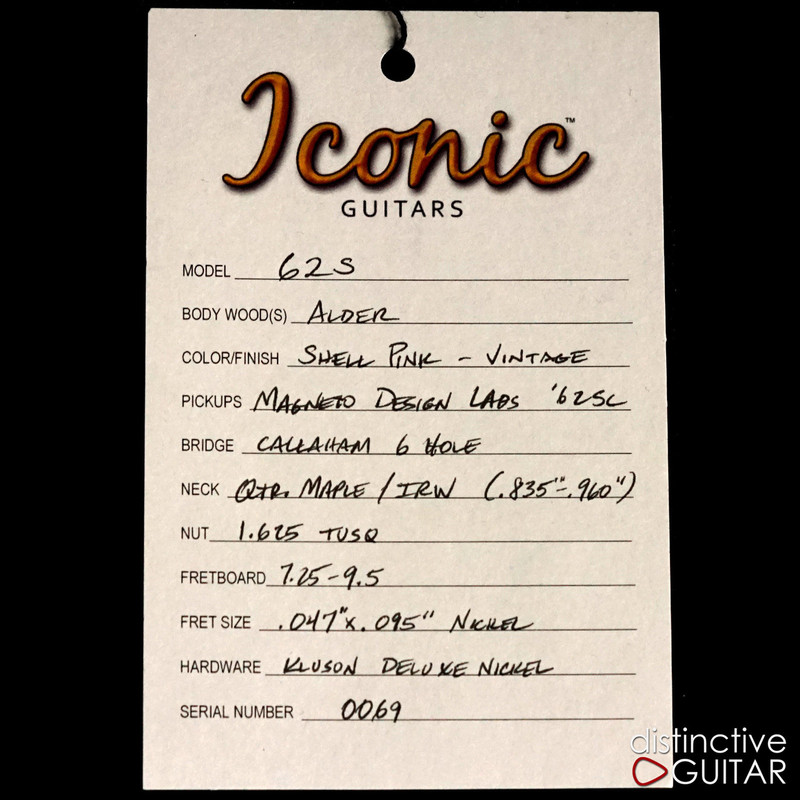 Iconic™
GUITARS
MODEL 62S
BODY WOOD(S) ALDER
COLOR/FINISH SHELL PINK - VINTAGE
PICKUPS MAGNETO DESIGN LABS '62SL
BRIDGE CALLAHAM 6 HOLE
NECK QTR. MAPLE / IRW (.835"-.960")
NUT 1.625 TUSQ
FRETBOARD 7.25-9.5
FRET SIZE .047"x.095" NICKEL
HARDWARE KLUSON DELUXE NICKEL
SERIAL NUMBER 0069
distinctive
GUITAR